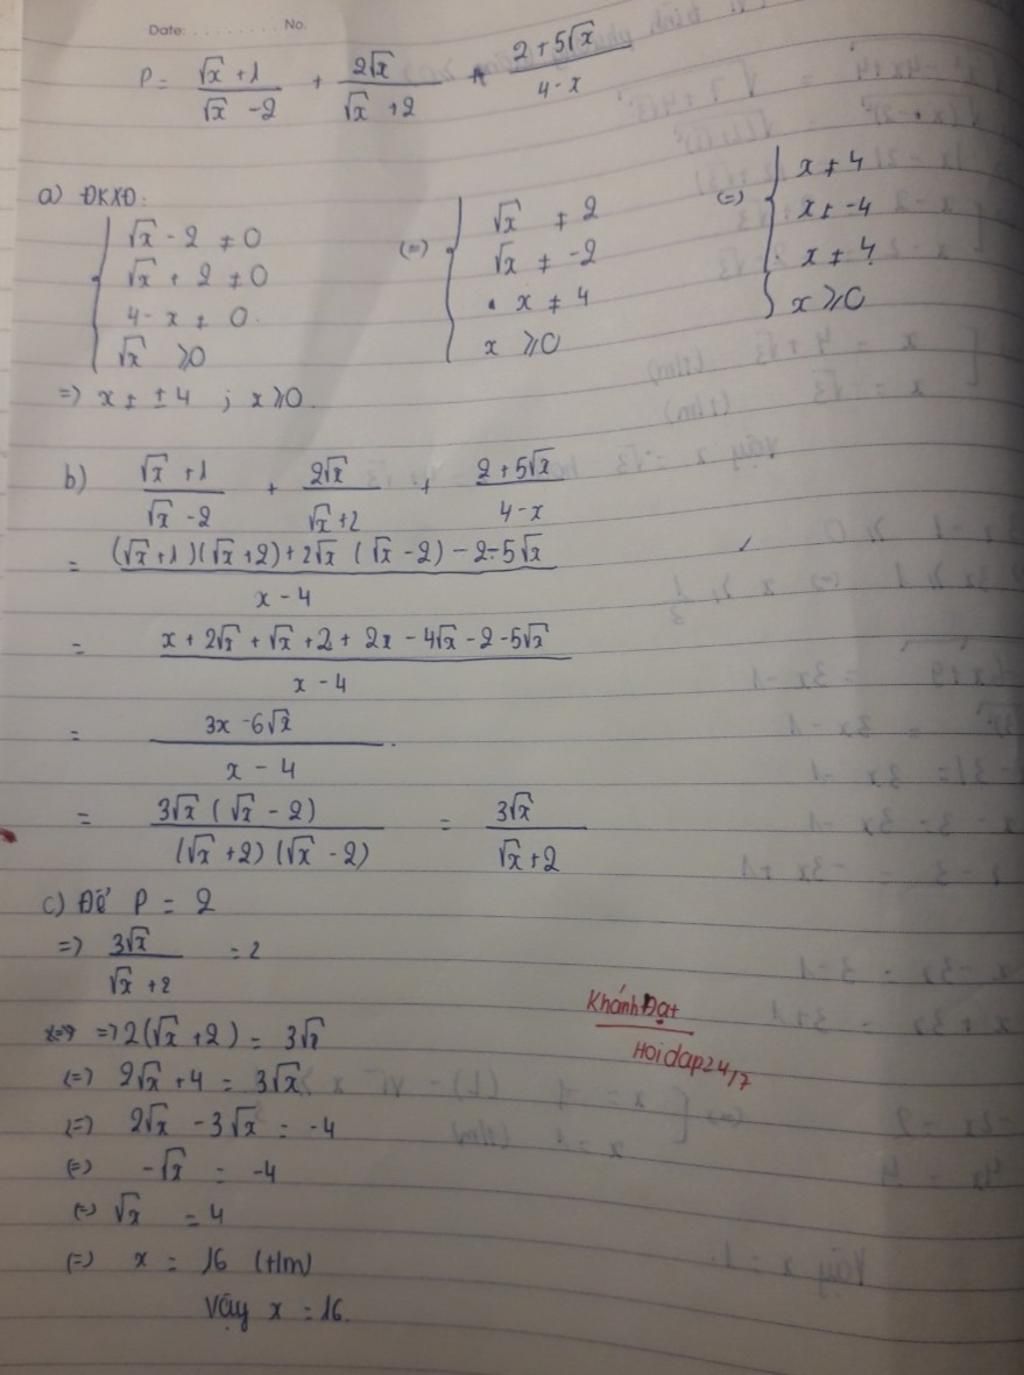 Date: ........ No.
P = (√x + 1)/(√x - 2) + 2√x/(√x + 2) + (2 + 5√x)/(4 - x)
a) ĐKXĐ:
{ √x - 2 ≠ 0 (=) { √x ≠ 2 (=) { x ≠ 4
√x + 2 ≠ 0 √x ≠ -2 x ≠ -4
4 - x ≠ 0 x ≠ 4 x ≠ 4
√x ⩾ 0 x ⩾ 0 x ⩾ 0
=) x ≠ ±4 ; x ⩾ 0
b) (√x + 1)/(√x - 2) + 2√x/(√x + 2) + (2 + 5√x)/(4 - x)
= ((√x + 1)(√x + 2) + 2√x (√x - 2) - 2 - 5√x)/(x - 4)
= (x + 2√x + √x + 2 + 2x - 4√x - 2 - 5√x)/(x - 4)
= (3x - 6√x)/(x - 4)
= 3√x (√x - 2)/((√x + 2)(√x - 2)) = 3√x/(√x + 2)
c) Để P = 2
=) 3√x/(√x + 2) = 2
=) 2(√x + 2) = 3√x
(=) 2√x + 4 = 3√x
(=) 2√x - 3√x = -4
(=) -√x = -4
(=) √x = 4
(=) x = 16 (t/m)
Vậy x = 16.
Khánh Đạt
Hoidap247